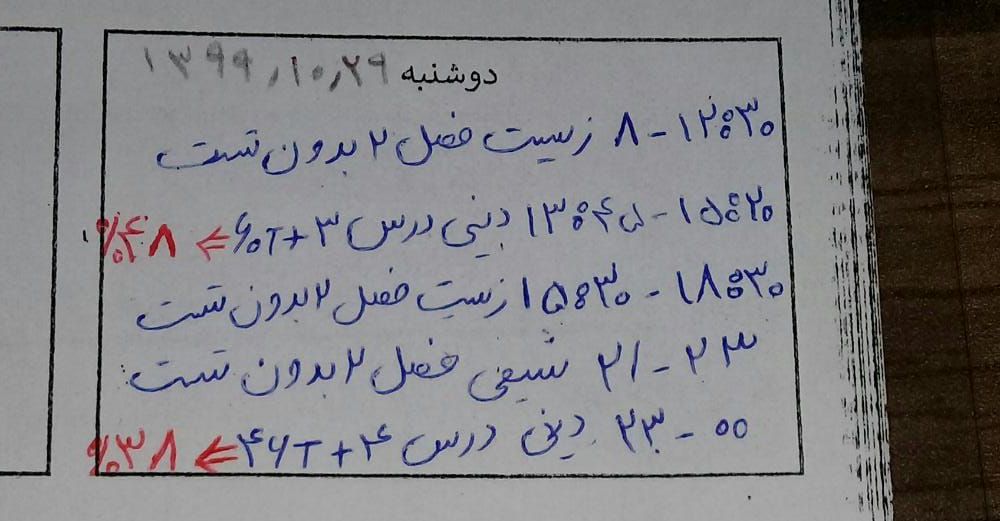 دوشنبه ۱۳۹۹,۱۰,۲۹
۸ - ۱۲:۳۰ زیست فصل ۲ بدون تست
۱۳:۴۵ - ۱۵:۲۰ دینی درس ۳ + ۶۰T ⇐ ٪۴۸
۱۵:۳۰ - ۱۸:۳۰ زیست فصل ۲ بدون تست
۲۱ - ۲۳ شیمی فصل ۲ بدون تست
۲۳ - ۰۰ دینی درس ۴ + ۴۶T ⇐ ٪۳۸